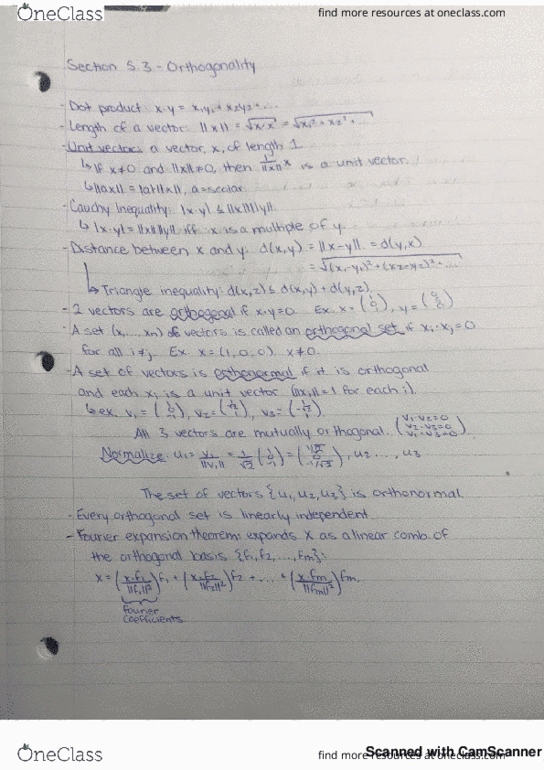 OneClass
find more resources at oneclass.com
Section 5.3 - Orthogonality
- Dot product: x·y = x₁y₁ + x₂y₂ + ...
- Length of a vector: ||x|| = √x·x = √x₁² + x₂² + ...
- Unit vector: a vector, x, of length 1.
↳ If x≠0 and ||x||≠0, then 1/||x|| x is a unit vector.
↳ ||ax|| = |a| ||x||, a=scalar
- Cauchy Inequality: |x·y| ≤ ||x|| ||y||.
↳ |x·y| = ||x|| ||y|| iff x is a multiple of y.
- Distance between x and y: d(x,y) = ||x-y|| = d(y,x)
= √(x₁-y₁)² + (x₂-y₂)² + ...
↳ Triangle inequality: d(x,z) ≤ d(x,y) + d(y,z).
- 2 vectors are orthogonal if x·y=0. Ex. x = , y =
- A set (x₁, ... xₙ) of vectors is called an orthogonal set if xᵢ·xⱼ=0
for all i≠j. Ex. x = (1,0,0). x≠0.
- A set of vectors is orthonormal if it is orthogonal
and each xᵢ is a unit vector (||xᵢ||=1 for each i).
↳ ex. v₁ = , v₂ = , v₃ =
All 3 vectors are mutually orthogonal. (v₁·v₂=0 v₂·v₃=0 v₁·v₃=0)
Normalize: u₁ = v₁/||v₁|| = 1/√2 = , u₂ ..., u₃
The set of vectors {u₁, u₂, u₃} is orthonormal.
- Every orthogonal set is linearly independent.
- Fourier expansion theorem: expands x as a linear comb. of
the orthogonal basis {f₁, f₂, ..., fm}:
x = (x·f₁/||f₁||²) f₁ + (x·f₂/||f₂||²) f₂ + ... + (x·fm/||fm||²) fm.
Fourier
Coefficients
OneClass
find more resources at oneclass.com
Scanned with CamScanner